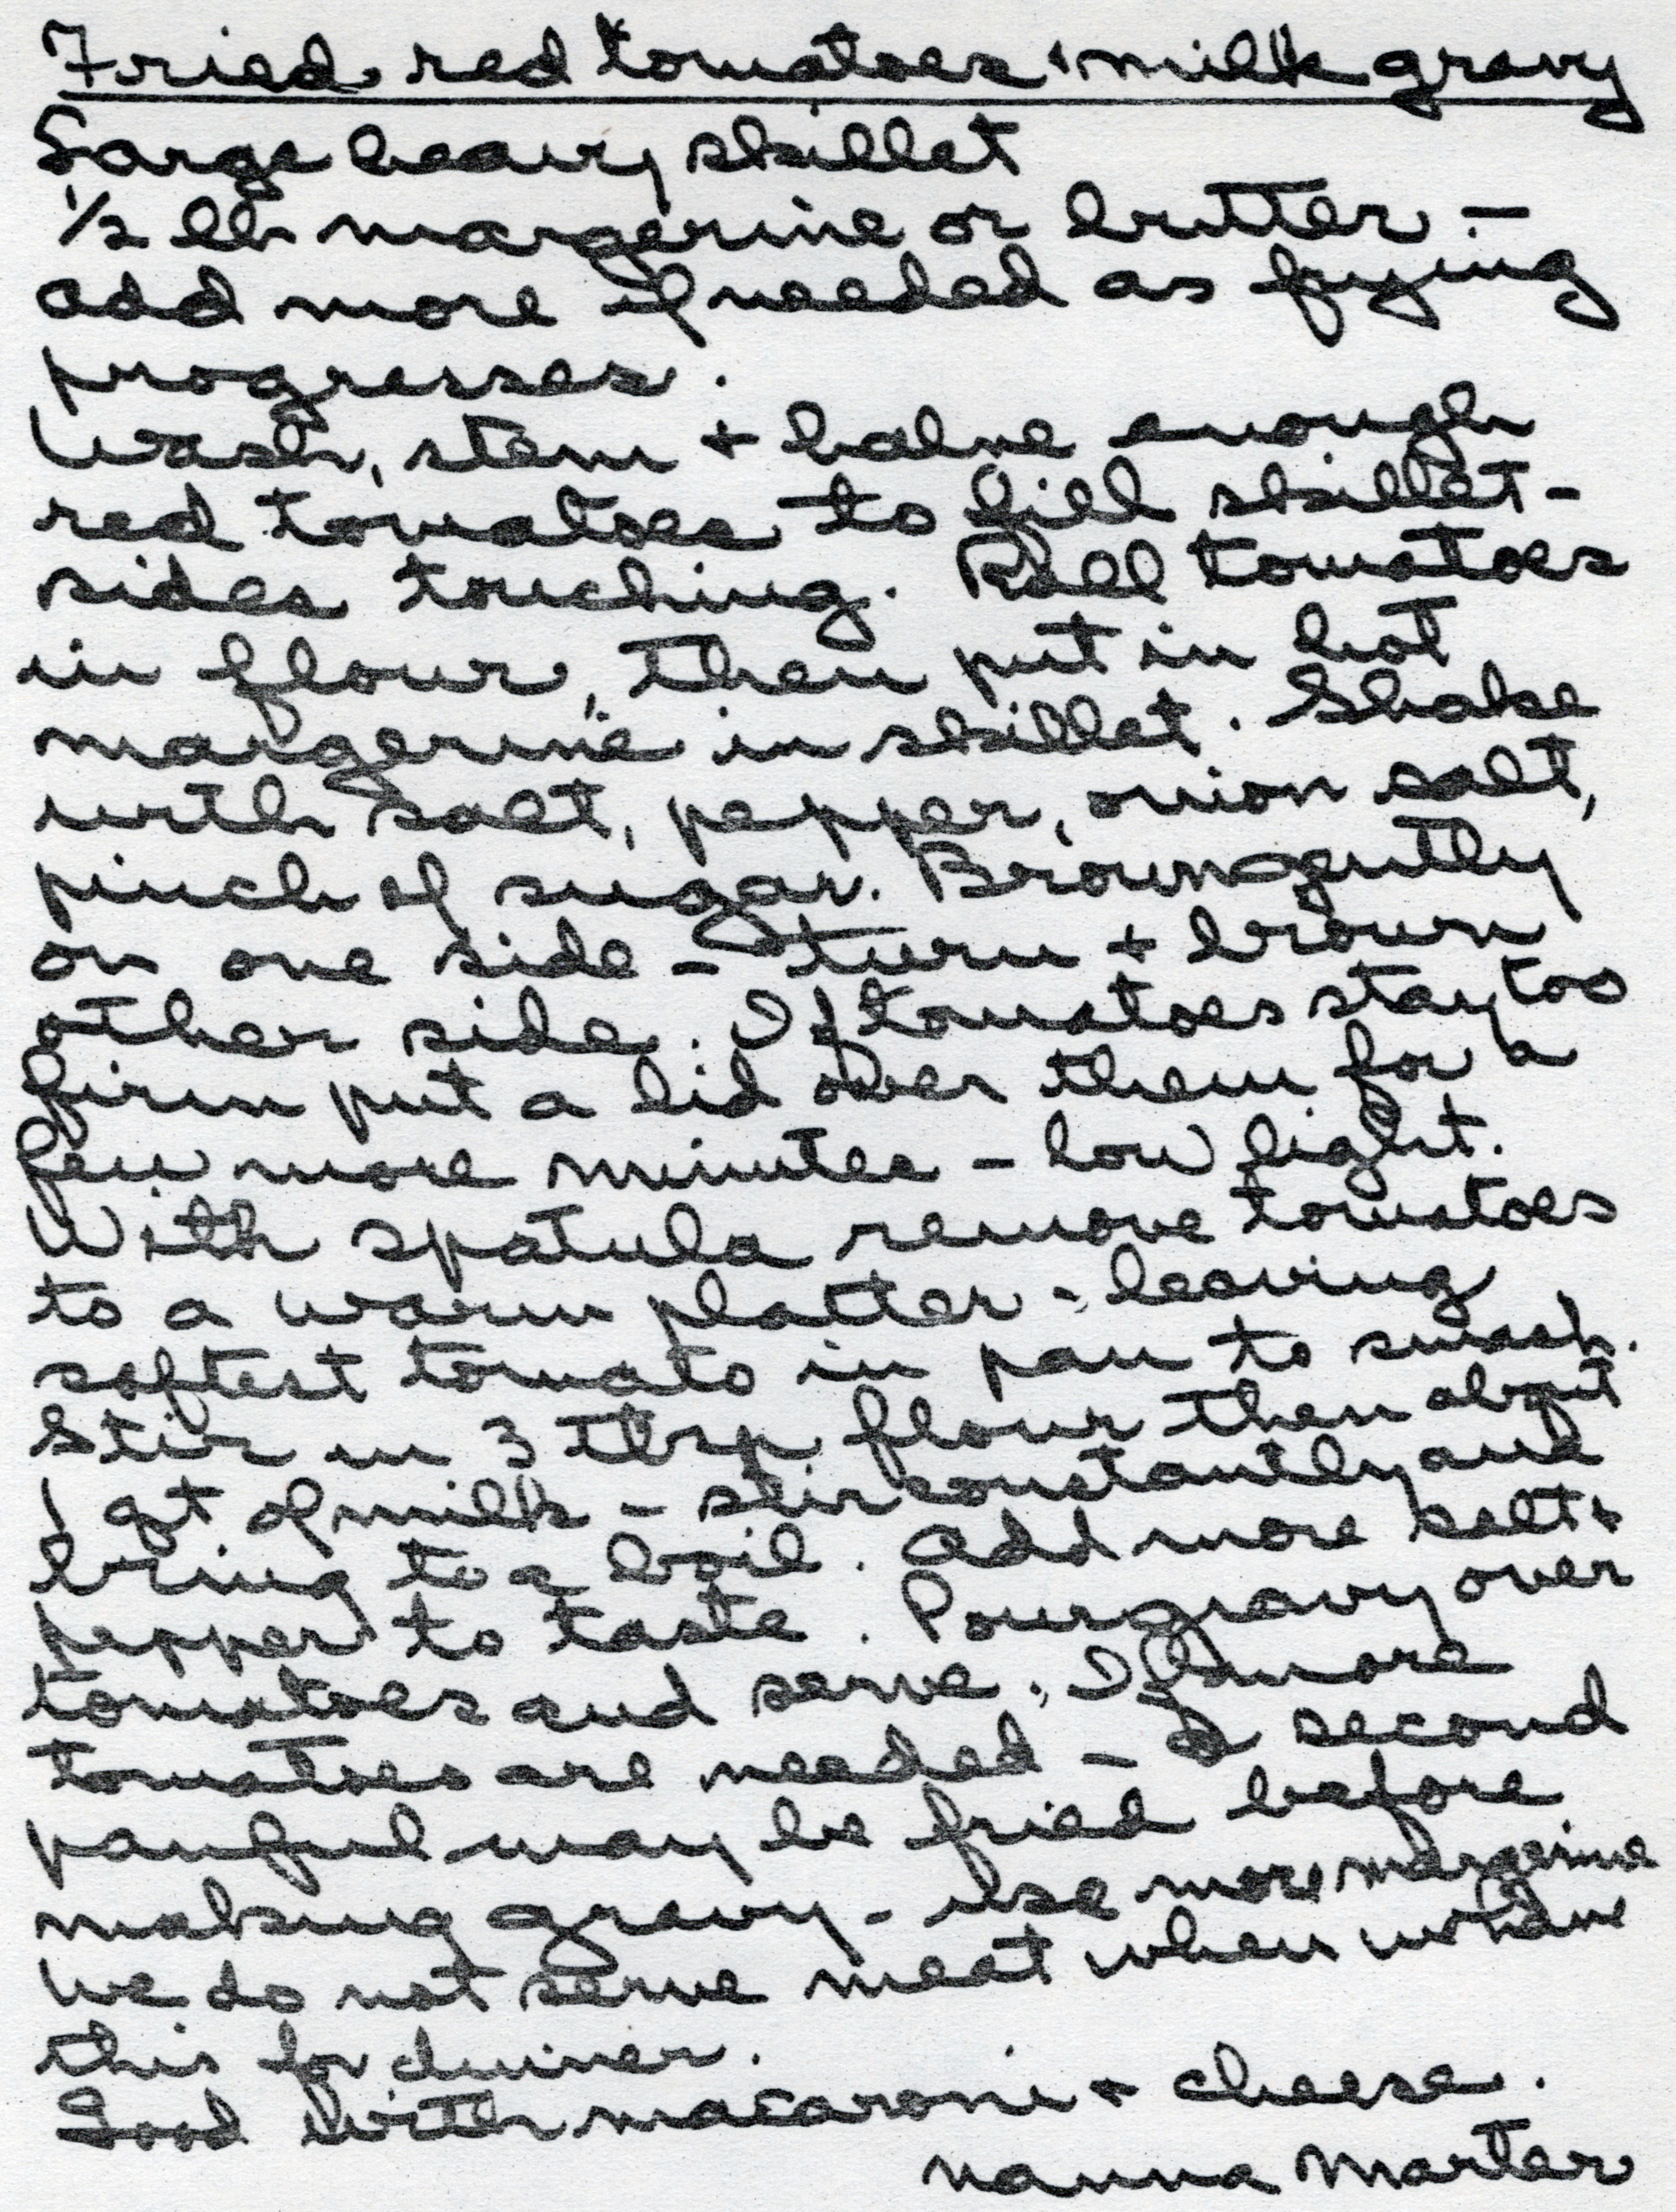 Fried red tomatoes + milk gravy
Large heavy skillet
1/2 lb margerine or butter -
add more if needed as frying
progresses.
Wash, stem + halve enough
red tomatoes to fill skillet -
sides touching. Roll tomatoes
in flour, then put in hot
margerine in skillet. Shake
with salt, pepper, onion salt,
pinch of sugar. Brown gently
on one side - turn + brown
other side. If tomatoes stay too
firm put a lid over them for a
few more minutes - low light.
With spatula remove tomatoes
to a warm platter - leaving
softest tomato in pan to smash.
Stir in 3 tbsp flour then about
1 qt of milk - stir constantly and
bring to a boil. Add more salt +
pepper to taste. Pour gravy over
tomatoes and serve. If more
tomatoes are needed - a second
panful may be fried before
making gravy - use more margerine
We do not serve meat when we have
this for dinner.
Good with macaroni + cheese.
Nanna Marter